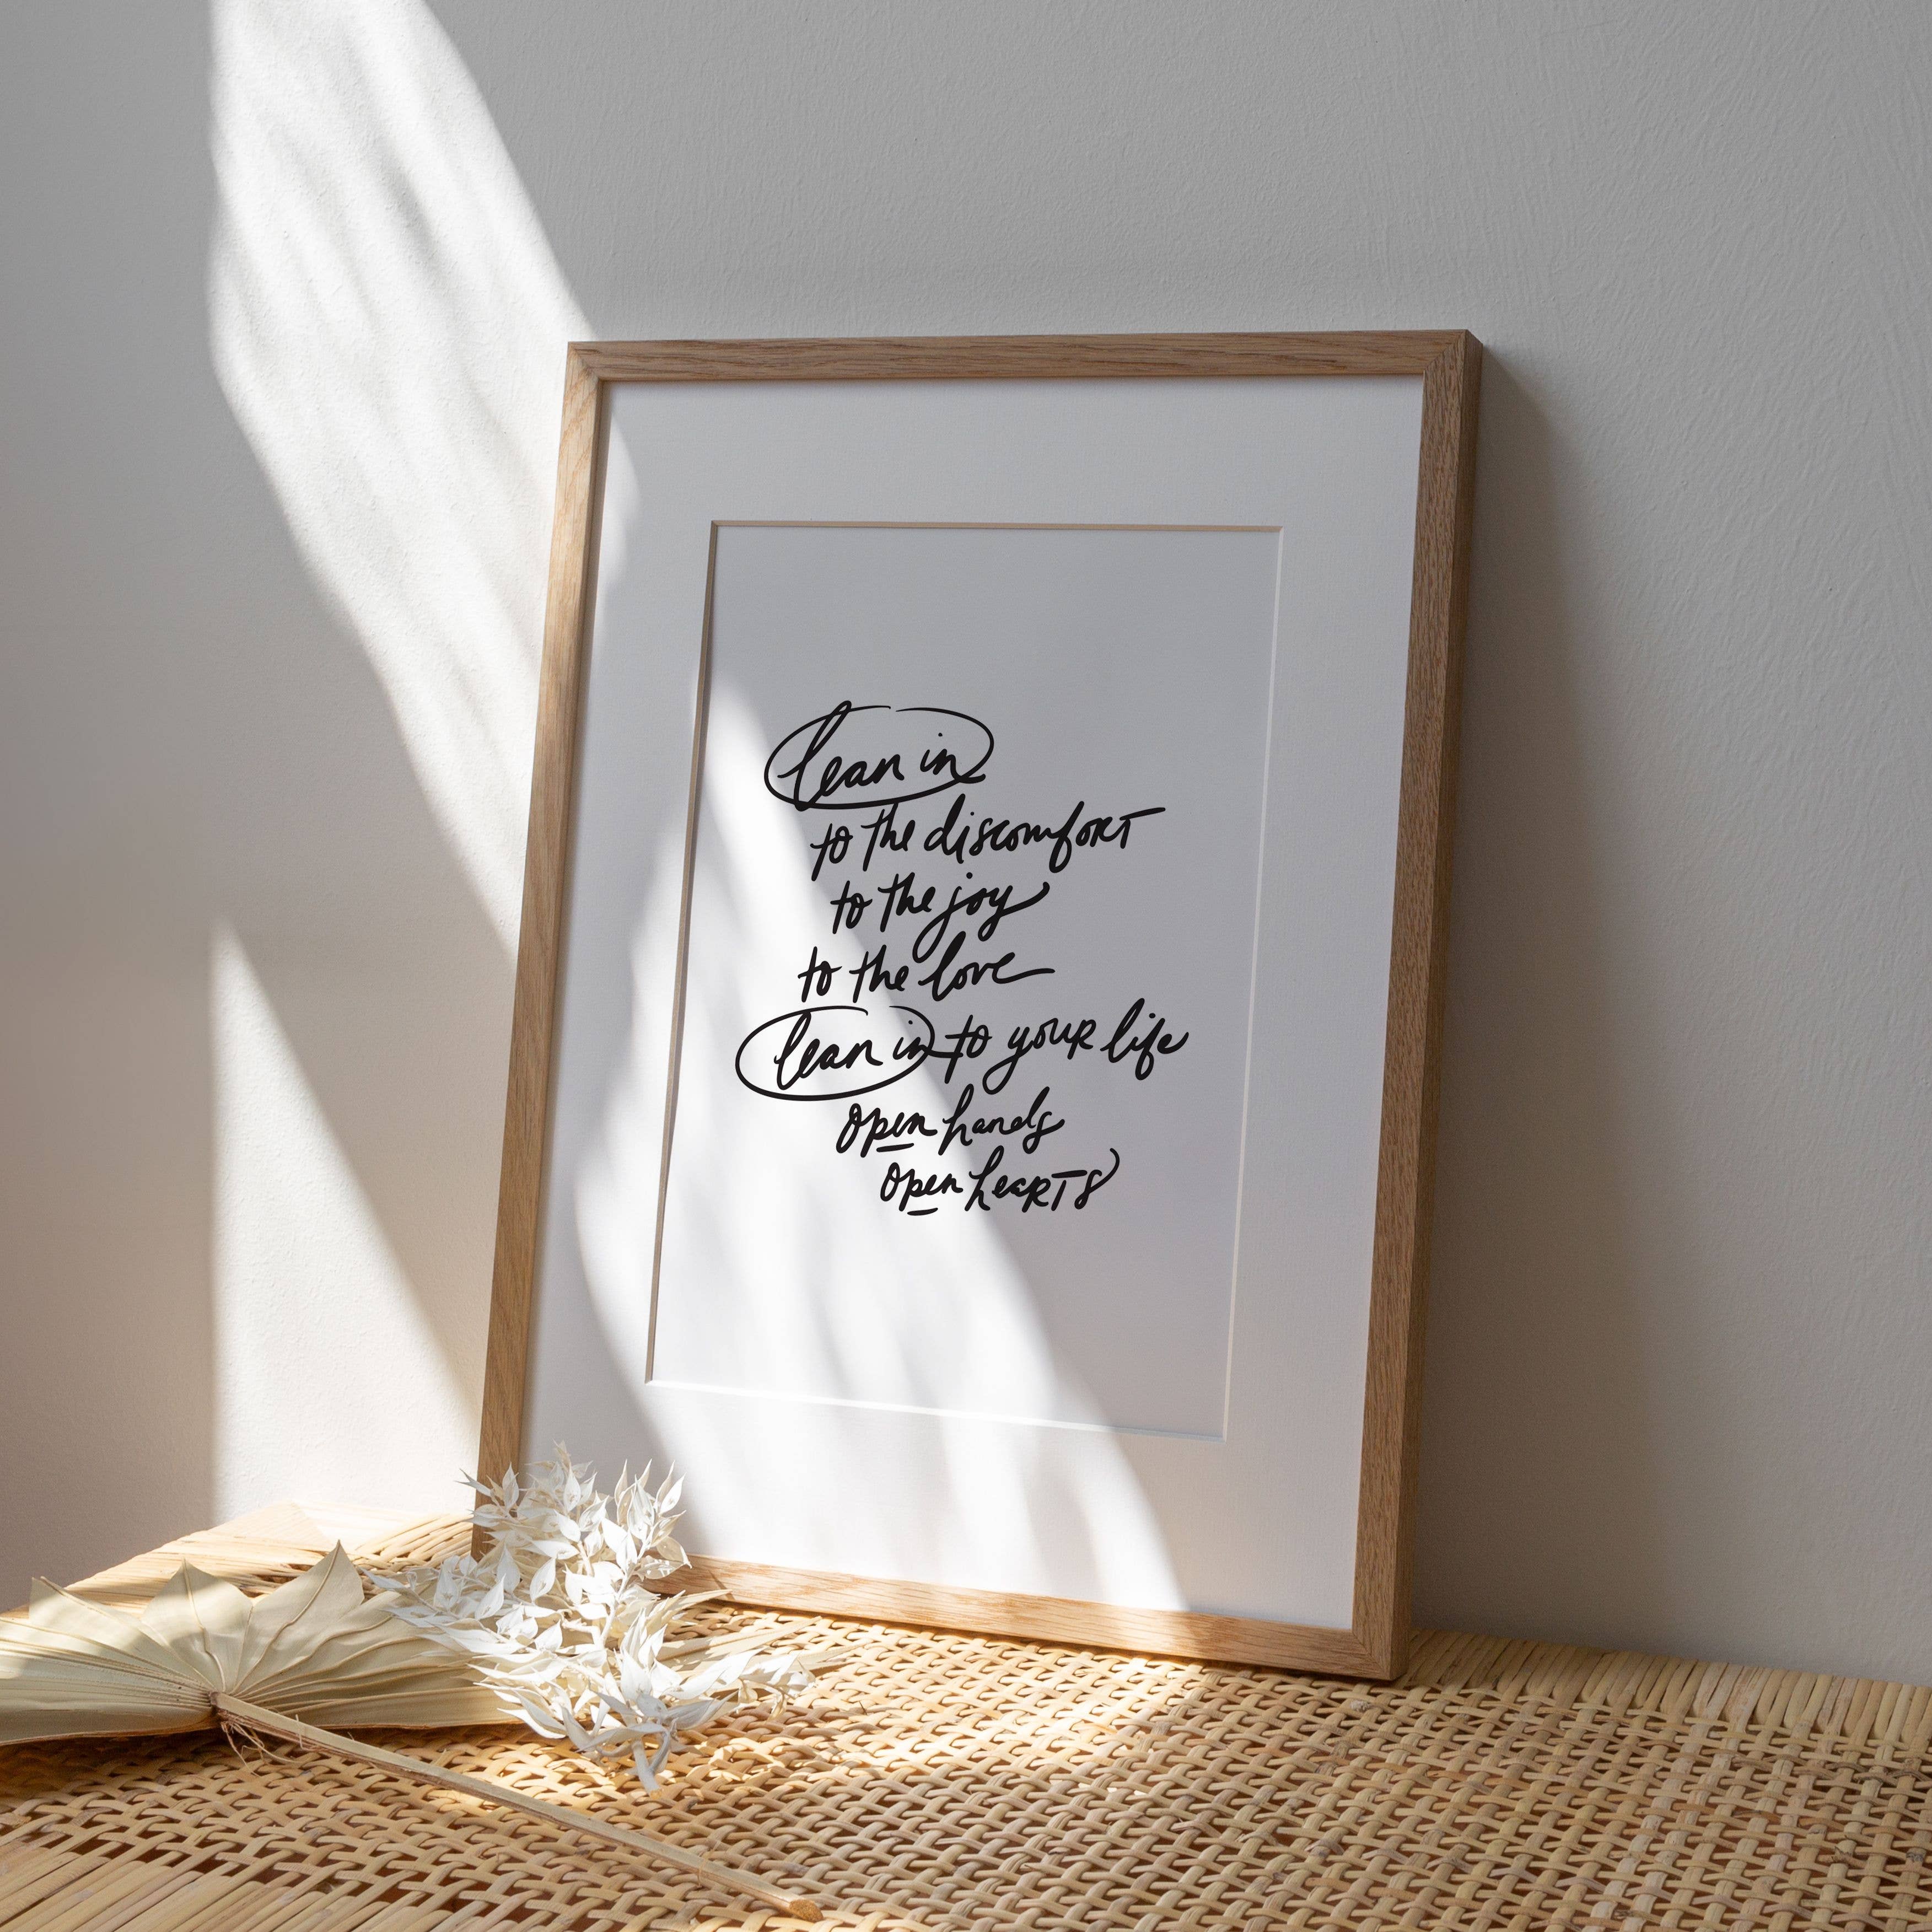 lean in
to the discomfoRT
to the joy
to the love
lean in to youR life
open hands
open heaRTs